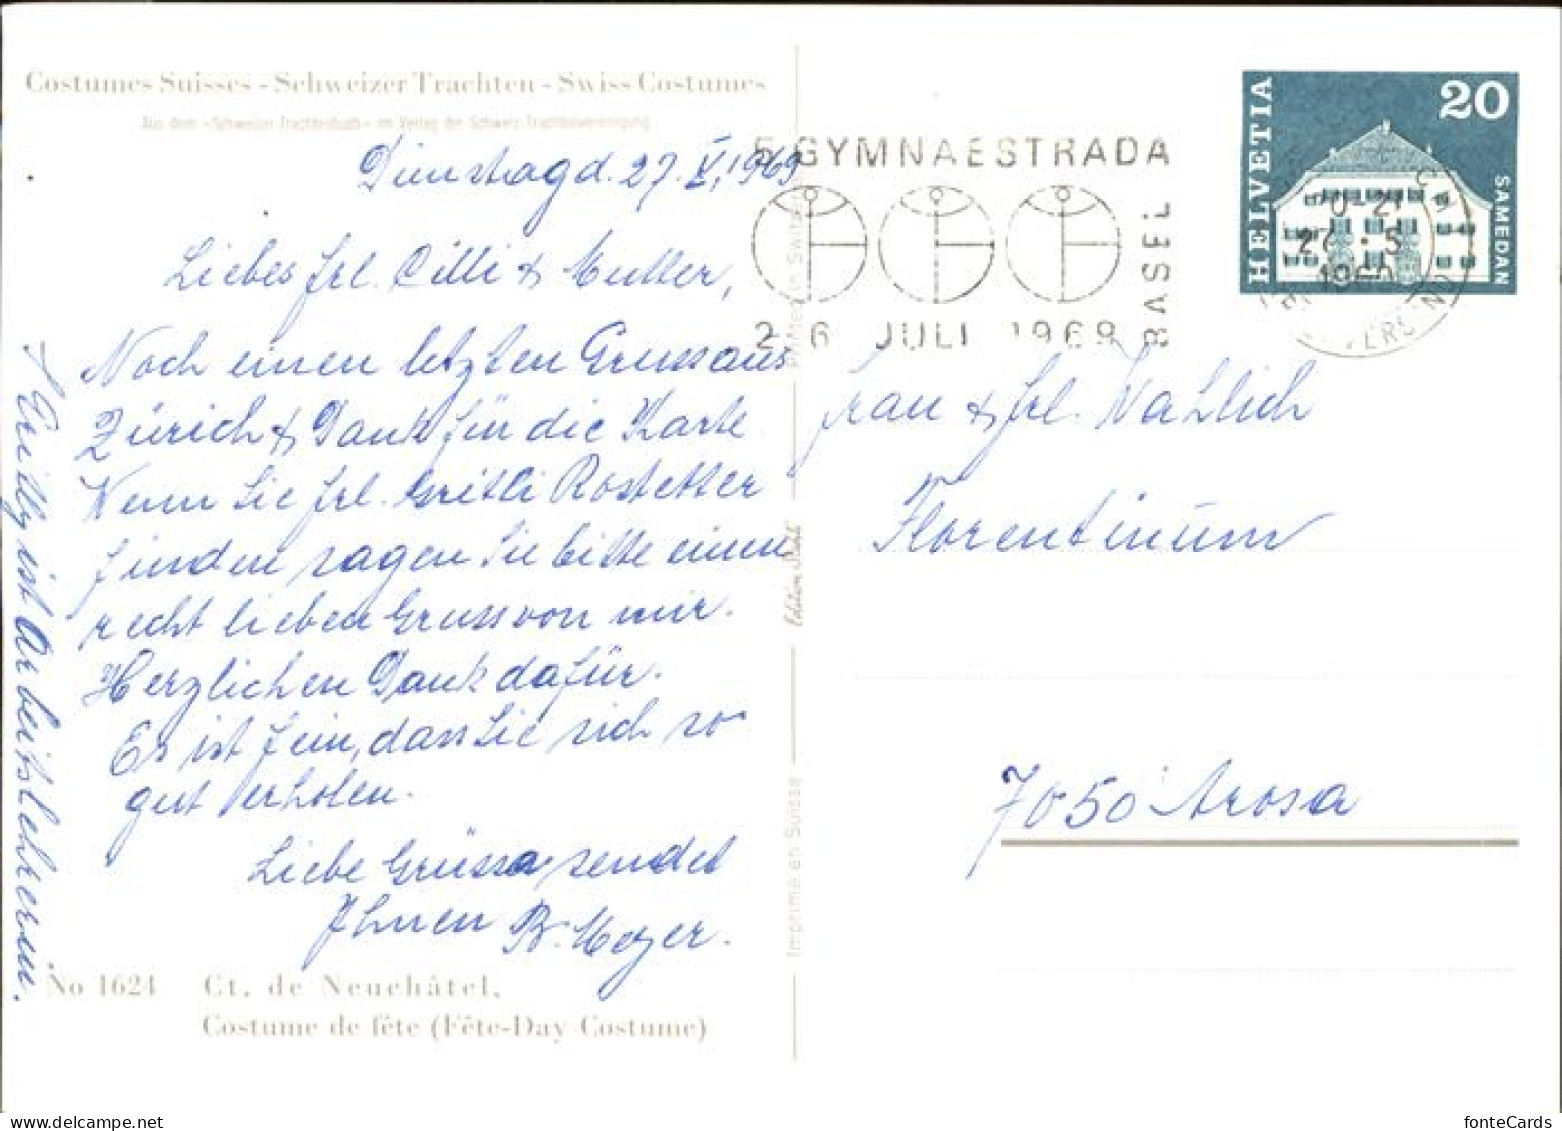 Costumes Suisses - Schweizer Trachten - Swiss Costumes
Aus dem «Schweizer Trachtenbuch» im Verlag der Schweiz. Trachtenvereinigung
Dienstag d. 27. V. 1969
Liebes Frl. Cilli & Mutter,
Noch einen letzten Gruss aus
Zürich & Dank für die Karte.
Wenn Sie Frl. Gritli Rostetter
finden sagen Sie bitte einen
recht lieben Gruss von mir.
Herzlichen Dank dafür.
Es ist fein, dass Sie sich so
gut erholen.
Liebe Grüsse sendet
Ihnen B. Meyer.
ist Arbeitslehrerin.
No 1624 Ct. de Neuchâtel,
Costume de fête (Fête-Day Costume)
Printed in Switzerland
Edition Stehli
Imprimé en Suisse
5. GYMNAESTRADA
BASEL
2-6 JULI 1969
HELVETIA
20
SAMEDAN
27.-5
1969
Frau & Frl.
Florentinum
7050 Arosa
fonteCards
www.delcampe.net